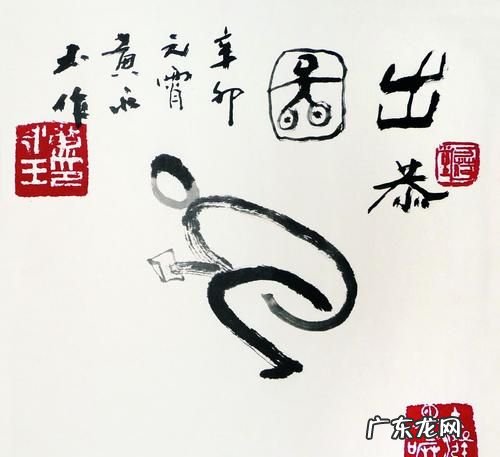 出恭
辛卯
元宵
黄永
玉作
广东龙网